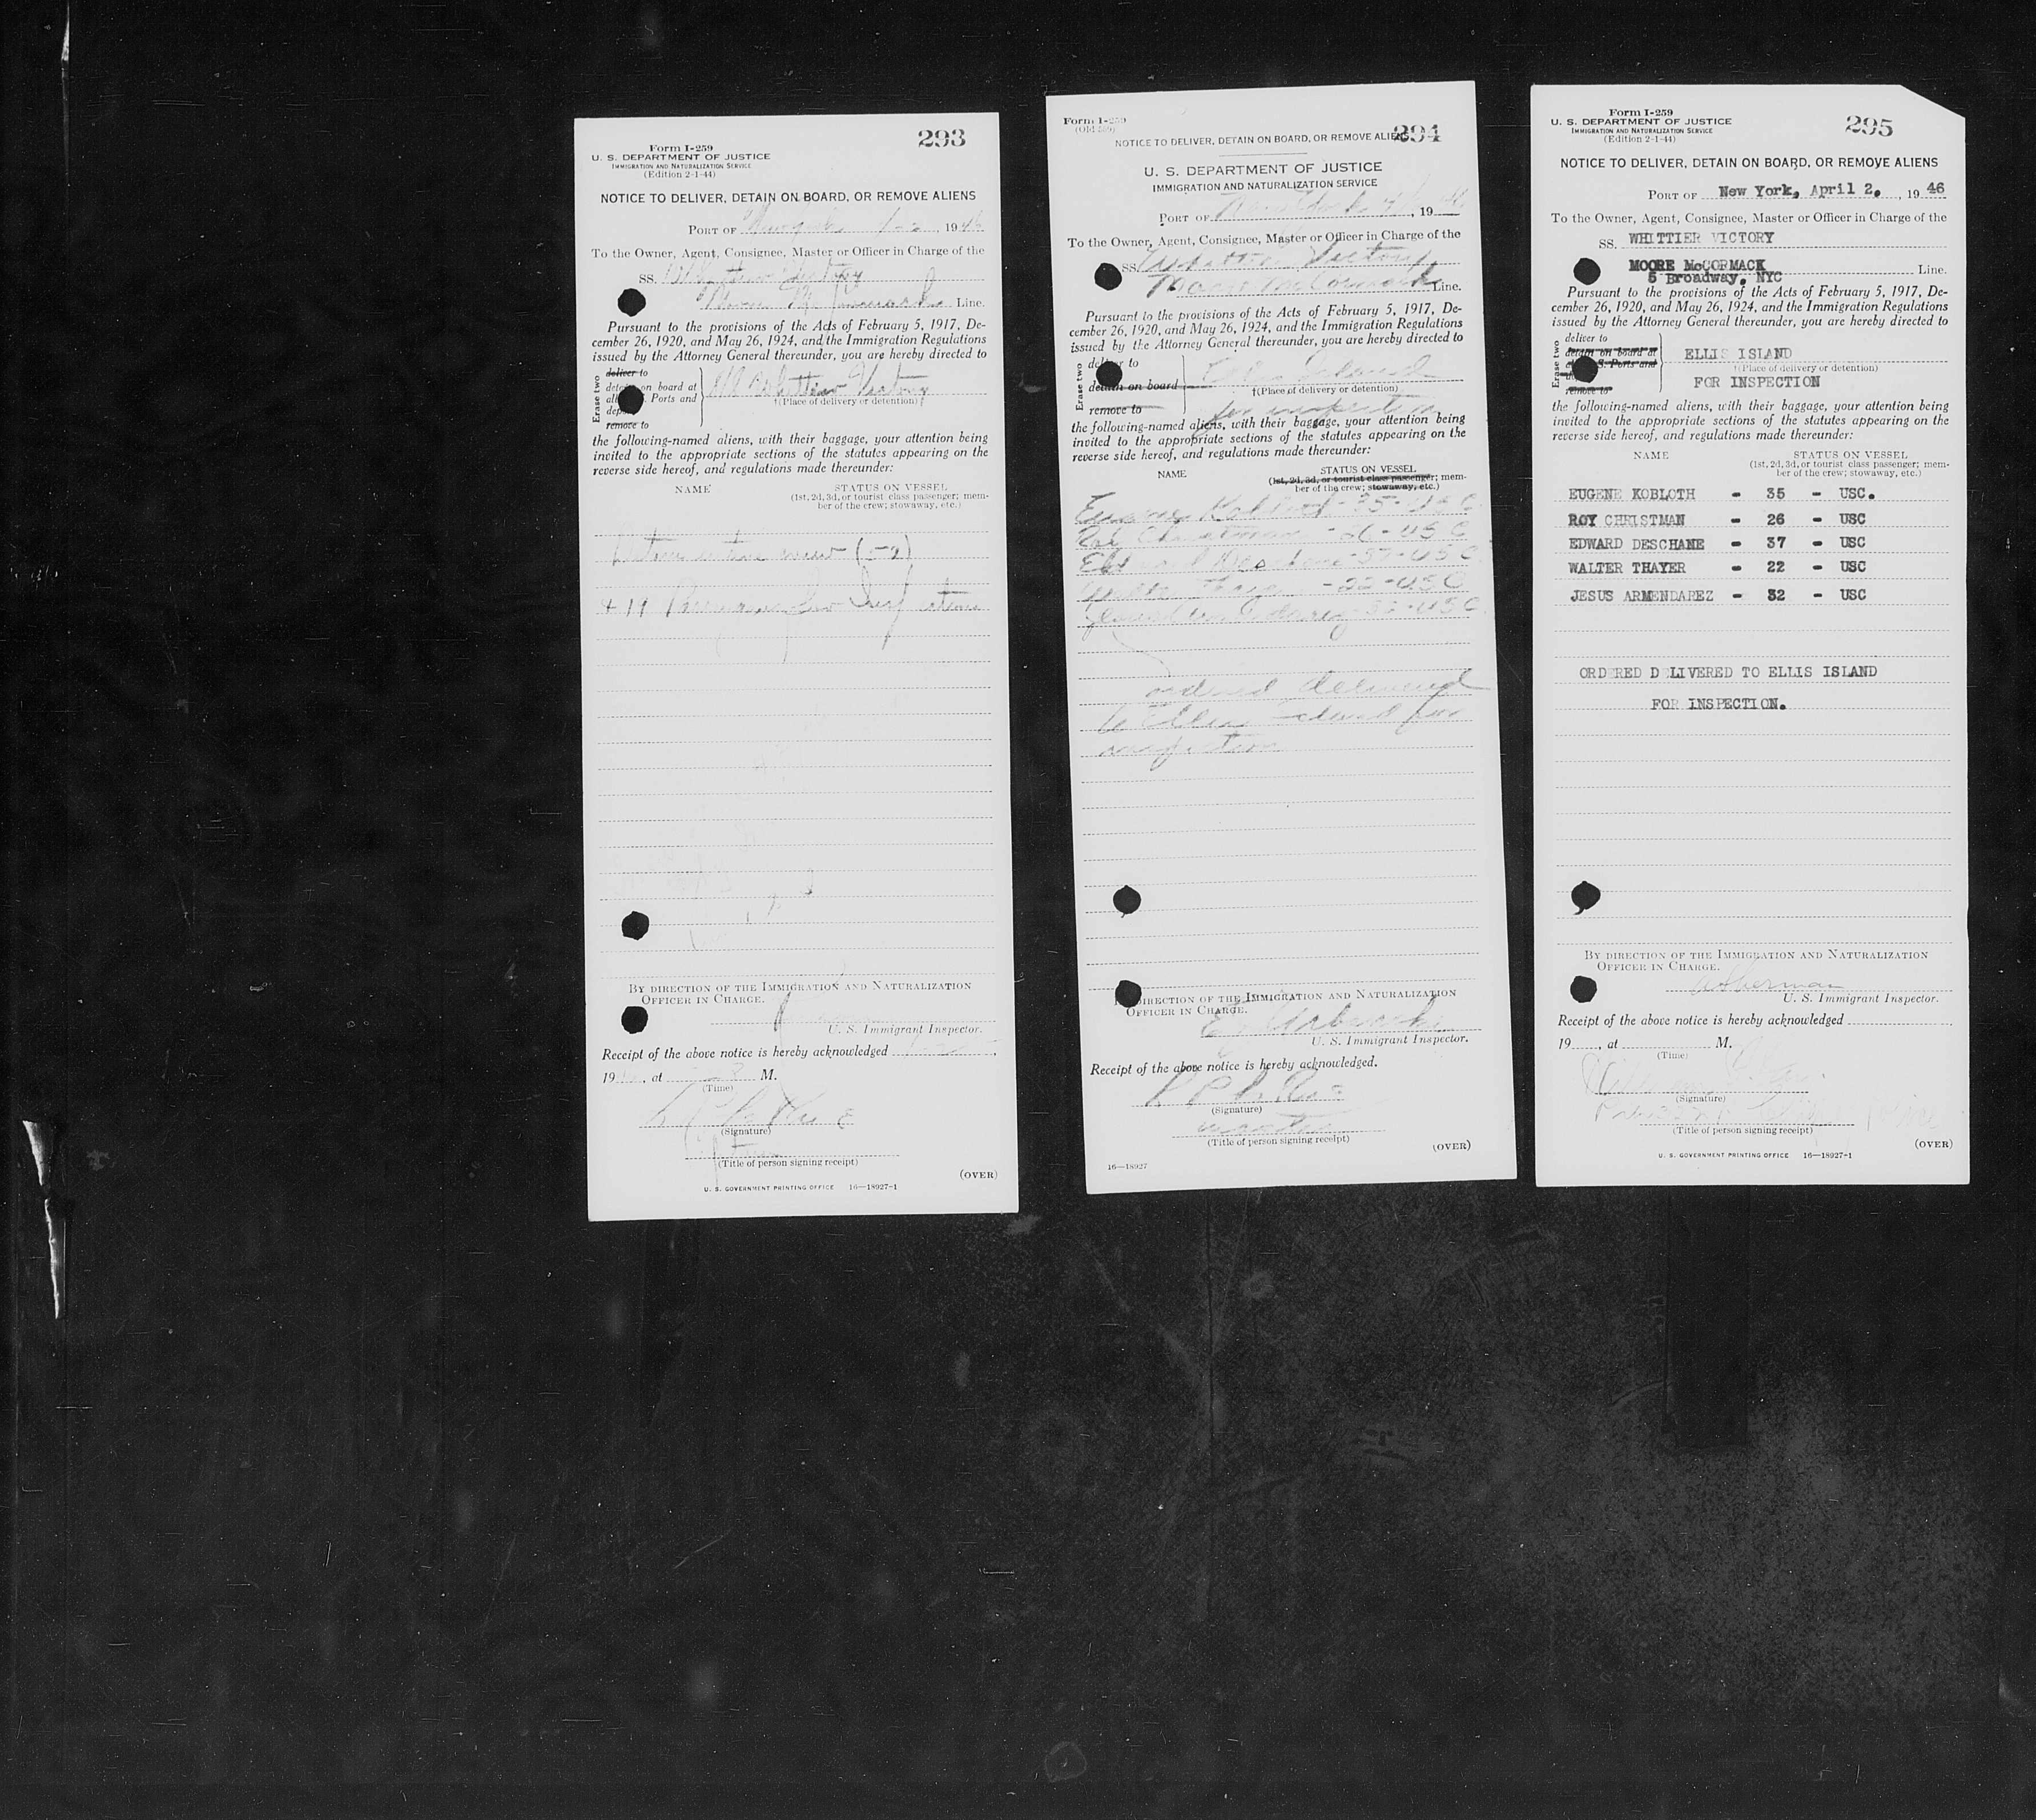 293
Form I-259
U. S. DEPARTMENT OF JUSTICE
IMMIGRATION AND NATURALIZATION SERVICE
(Edition 2-1-44)
NOTICE TO DELIVER, DETAIN ON BOARD, OR REMOVE ALIENS
PORT OF 19
To the Owner, Agent, Consignee, Master or Officer in Charge of the
SS. Whittier Victory
Moore McCormack Line.
Pursuant to the provisions of the Acts of February 5, 1917, De-
cember 26, 1920, and May 26, 1924, and the Immigration Regulations
issued by the Attorney General thereunder, you are hereby directed to
Erase two
deliver to
on board at
Ports and
remove to
Whittier Victory
†(Place of delivery or detention)
the following-named aliens, with their baggage, your attention being
invited to the appropriate sections of the statutes appearing on the
reverse side hereof, and regulations made thereunder:
NAME STATUS ON VESSEL
(1st, 2d, 3d, or tourist class passenger; mem-
ber of the crew; stowaway, etc.)
BY DIRECTION OF THE IMMIGRATION AND NATURALIZATION
OFFICER IN CHARGE.
U. S. Immigrant Inspector.
Receipt of the above notice is hereby acknowledged
19 , at M.
(Time)
(Signature)
(Title of person signing receipt)
(OVER)
U. S. GOVERNMENT PRINTING OFFICE 16—18927-1
Form I-259
(Old 259)
294
NOTICE TO DELIVER, DETAIN ON BOARD, OR REMOVE ALIENS
U. S. DEPARTMENT OF JUSTICE
IMMIGRATION AND NATURALIZATION SERVICE
PORT OF New York , 19
To the Owner, Agent, Consignee, Master or Officer in Charge of the
SS. Whittier Victory
Moore McCormack Line.
Pursuant to the provisions of the Acts of February 5, 1917, De-
cember 26, 1920, and May 26, 1924, and the Immigration Regulations
issued by the Attorney General thereunder, you are hereby directed to
Erase two
deliver to
detain on board
remove to
Ellis Island
†(Place of delivery or detention)
for inspection
the following-named aliens, with their baggage, your attention being
invited to the appropriate sections of the statutes appearing on the
reverse side hereof, and regulations made thereunder:
NAME STATUS ON VESSEL
(1st, 2d, 3d, or tourist class passenger; mem-
ber of the crew; stowaway, etc.)
Eugene Kobloth - 35 - USC
Roy Christman - 26 - USC
Edward Deschane - 37 - USC
Walter Thayer - 22 - USC
Jesus Armendarez - 32 - USC
ordered delivered
to Ellis Island for
inspection
BY DIRECTION OF THE IMMIGRATION AND NATURALIZATION
OFFICER IN CHARGE.
U. S. Immigrant Inspector.
Receipt of the above notice is hereby acknowledged.
(Signature)
master
(Title of person signing receipt)
(OVER)
16—18927
Form I-259
U. S. DEPARTMENT OF JUSTICE
IMMIGRATION AND NATURALIZATION SERVICE
(Edition 2-1-44)
295
NOTICE TO DELIVER, DETAIN ON BOARD, OR REMOVE ALIENS
PORT OF New York, April 2, , 19 46
To the Owner, Agent, Consignee, Master or Officer in Charge of the
SS. WHITTIER VICTORY
MOORE McCORMACK Line.
5 Broadway, NYC
Pursuant to the provisions of the Acts of February 5, 1917, De-
cember 26, 1920, and May 26, 1924, and the Immigration Regulations
issued by the Attorney General thereunder, you are hereby directed to
Erase two
deliver to
detain on board at
S. Ports and
remove to
ELLIS ISLAND
†(Place of delivery or detention)
FOR INSPECTION
the following-named aliens, with their baggage, your attention being
invited to the appropriate sections of the statutes appearing on the
reverse side hereof, and regulations made thereunder:
NAME STATUS ON VESSEL
(1st, 2d, 3d, or tourist class passenger; mem-
ber of the crew; stowaway, etc.)
EUGENE KOBLOTH - 35 - USC.
ROY CHRISTMAN - 26 - USC
EDWARD DESCHANE - 37 - USC
WALTER THAYER - 22 - USC
JESUS ARMENDAREZ - 32 - USC
ORDERED DELIVERED TO ELLIS ISLAND
FOR INSPECTION.
BY DIRECTION OF THE IMMIGRATION AND NATURALIZATION
OFFICER IN CHARGE.
U. S. Immigrant Inspector.
Receipt of the above notice is hereby acknowledged
19 , at M.
(Time)
(Signature)
(Title of person signing receipt)
(OVER)
U. S. GOVERNMENT PRINTING OFFICE 16—18927-1